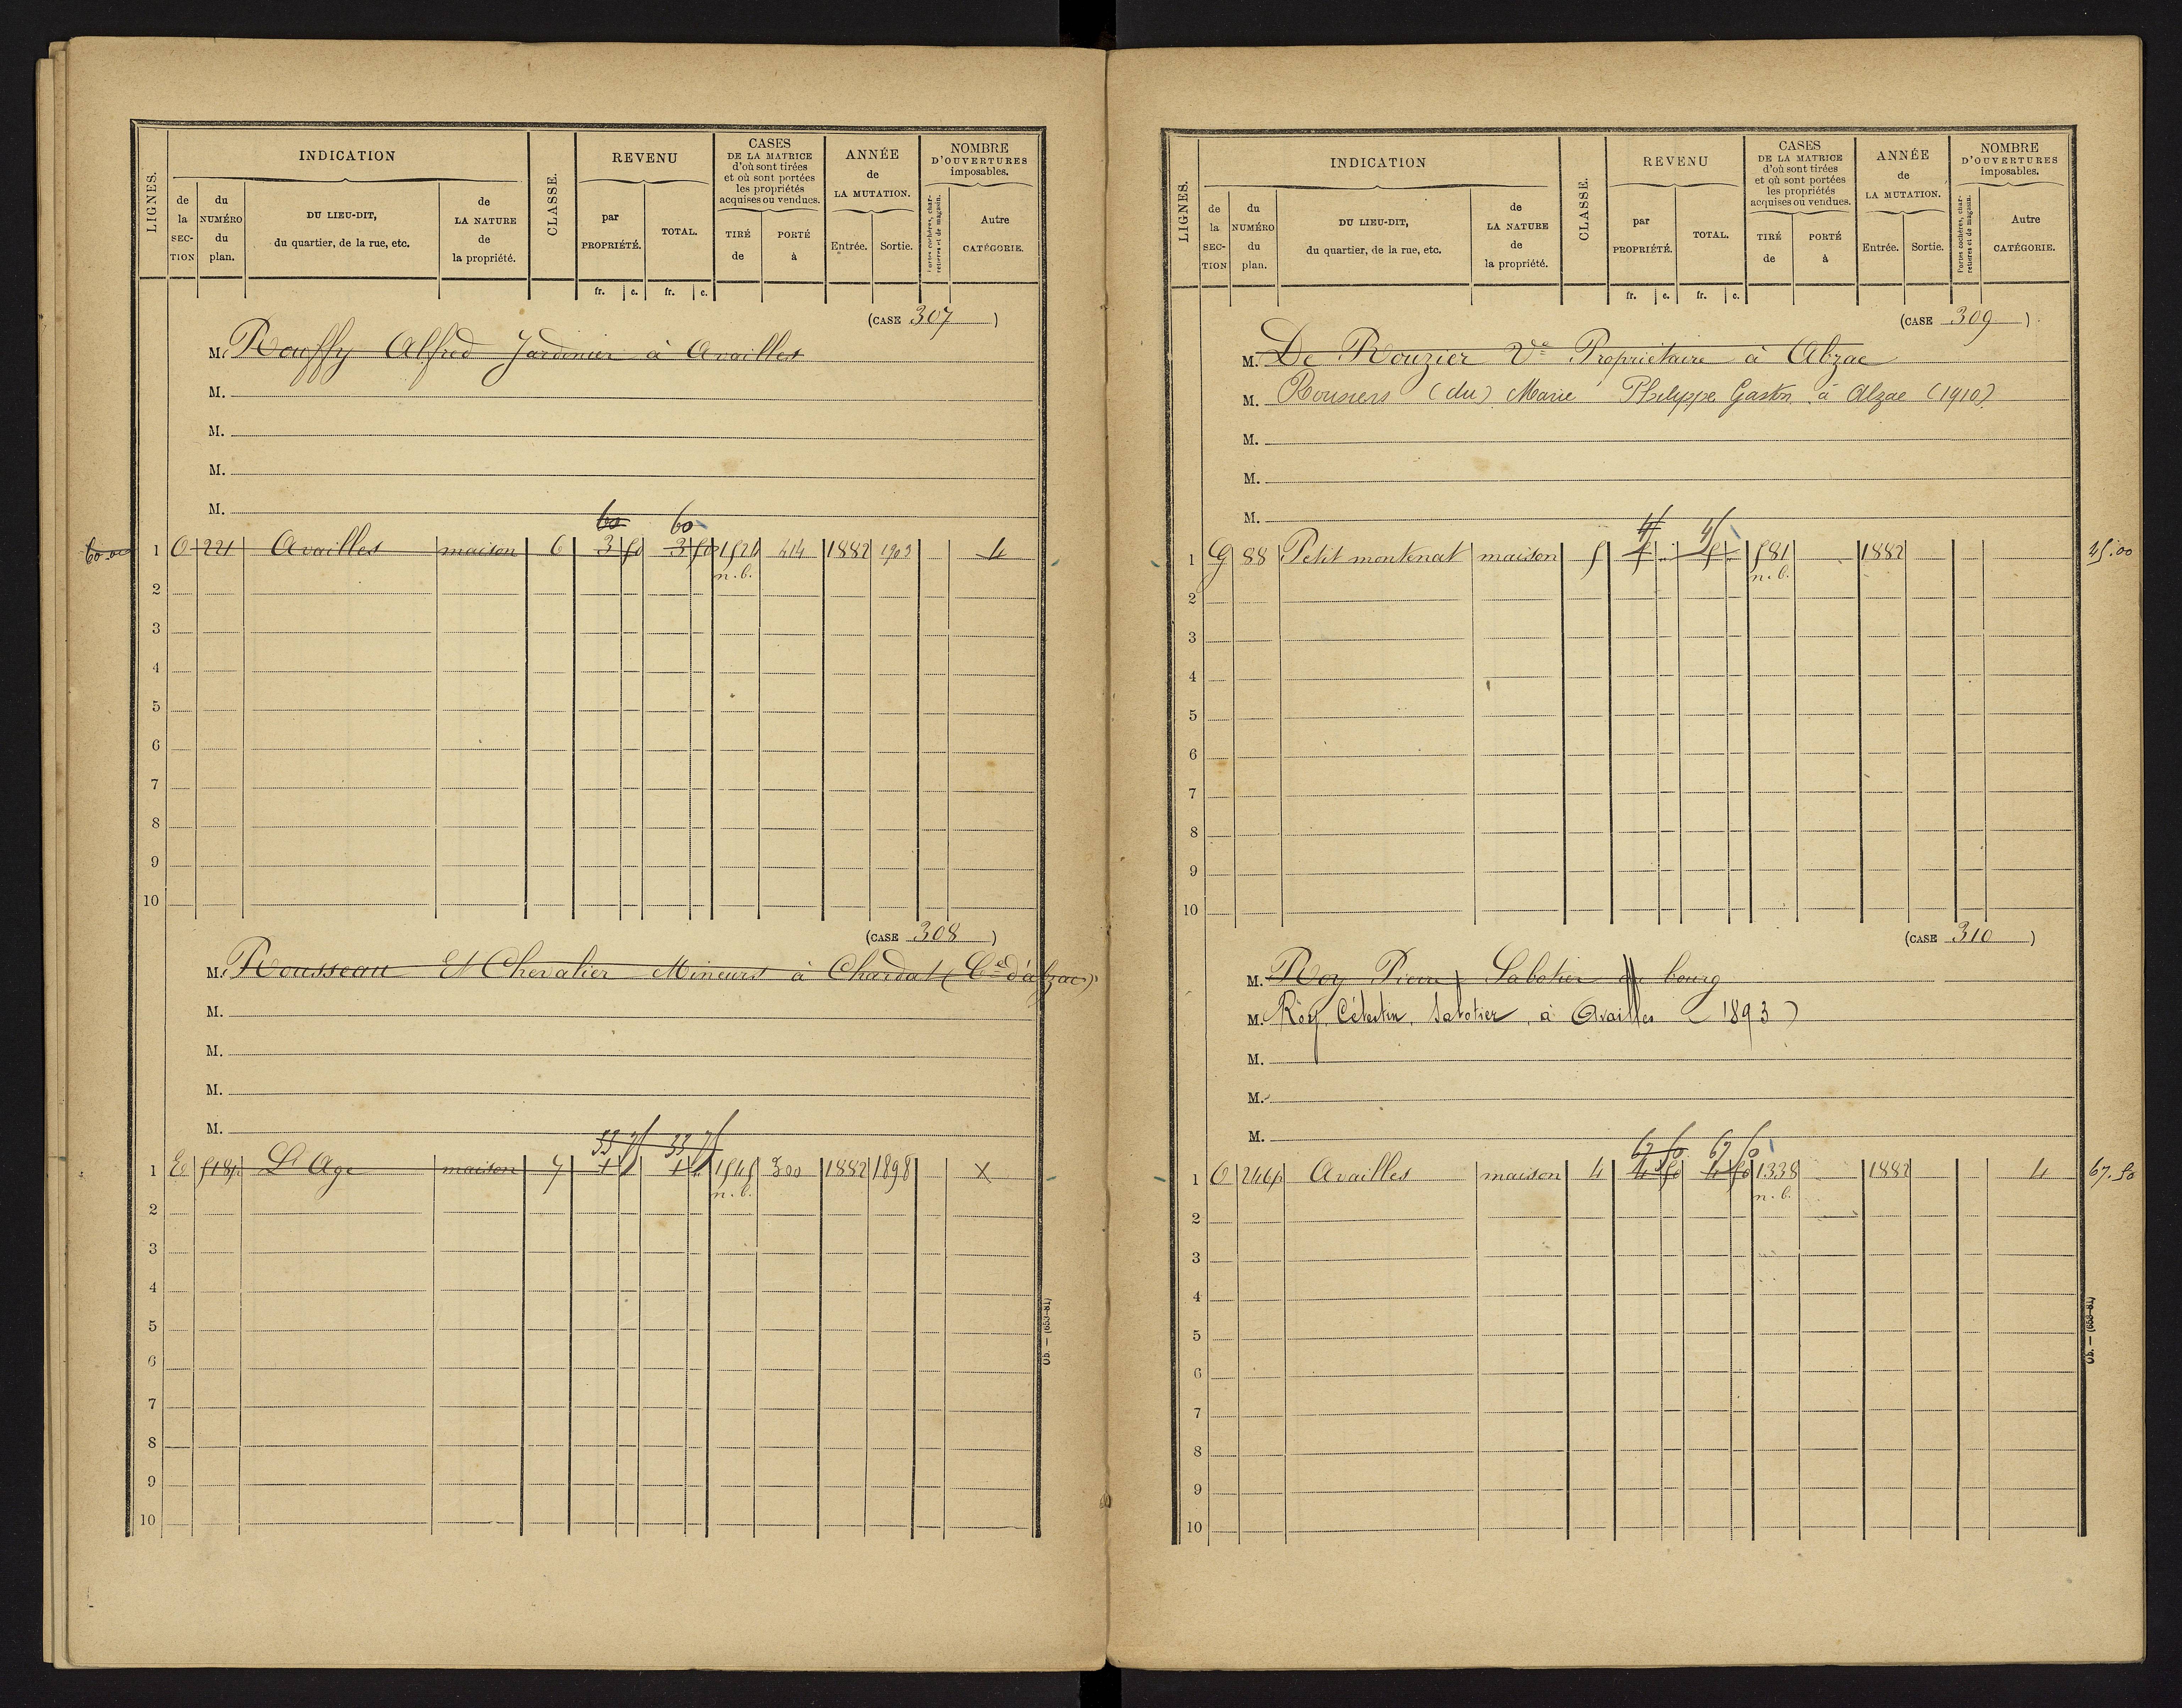 LIGNES.
INDICATION
de la SECTION
du NUMÉRO du plan.
DU LIEU-DIT, du quartier, de la rue, etc.
de LA NATURE de la propriété.
CLASSE.
REVENU
par PROPRIÉTÉ.
TOTAL.
fr. c. fr. c.
CASES DE LA MATRICE d'où sont tirées et où sont portées les propriétés acquises ou vendues.
TIRÉ de
PORTÉ à
ANNÉE de LA MUTATION.
Entrée. Sortie.
NOMBRE D'OUVERTURES imposables.
Portes cochères, charretières et de magasin.
Autre CATÉGORIE.
(CASE 307)
M. Rouffy Alfred Jardinier à Availles
M.
M.
M.
M.
60 60
1 O 221 Availles maison 6 3 50 3 50 1521 414 1882 1903 4
n. b.
2
3
4
5
6
7
8
9
10
(CASE 308)
M. Rousseau Et Chevalier Mineurs à Chardat (Cne d'abzac)
M.
M.
M.
M.
33 75 33 75
1 518p L'Age maison 7 1 1 1545 300 1882 1898 X
n. b.
2
3
4
5
6
7
8
9
10
Ob. — (653-81)
LIGNES.
INDICATION
de la SECTION
du NUMÉRO du plan.
DU LIEU-DIT, du quartier, de la rue, etc.
de LA NATURE de la propriété.
CLASSE.
REVENU
par PROPRIÉTÉ.
TOTAL.
fr. c. fr. c.
CASES DE LA MATRICE d'où sont tirées et où sont portées les propriétés acquises ou vendues.
TIRÉ de
PORTÉ à
ANNÉE de LA MUTATION.
Entrée. Sortie.
NOMBRE D'OUVERTURES imposables.
Portes cochères, charretières et de magasin.
Autre CATÉGORIE.
(CASE 309)
M. De Rouzier Ve Propriétaire à Abzac
M. Rousiers (du) Marie Philippe Gaston à Alzac (1910)
M.
M.
M.
45 45
1 G 88 Petit montenat maison 5 5 5 581 1882 45.00
n. b.
2
3
4
5
6
7
8
9
10
(CASE 310)
M. Roy Pierre Sabotier au bourg
M. Roy, Célestin, Sabotier, à Availles (1893)
M.
M.
M.
67 50 67 50
1 O 246p Availles maison 4 4 50 4 50 1338 1882 4 67.50
n. b.
2
3
4
5
6
7
8
9
10
Ob. — (653-81)